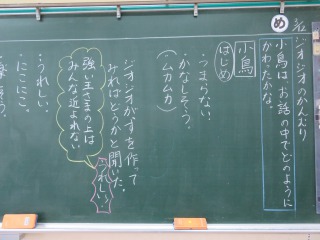 め
ジオジオのかんむり
小鳥は、お話の中でどのように
かわったかな。
小鳥
はじめ
・つまらない。
・かなしそう。
(ムカムカ)
ジオジオがすを作って
みればどうかと聞いた。
強い王さまの上は
みんな近よれない
うれしい。
・うれしい。
にこにこ。